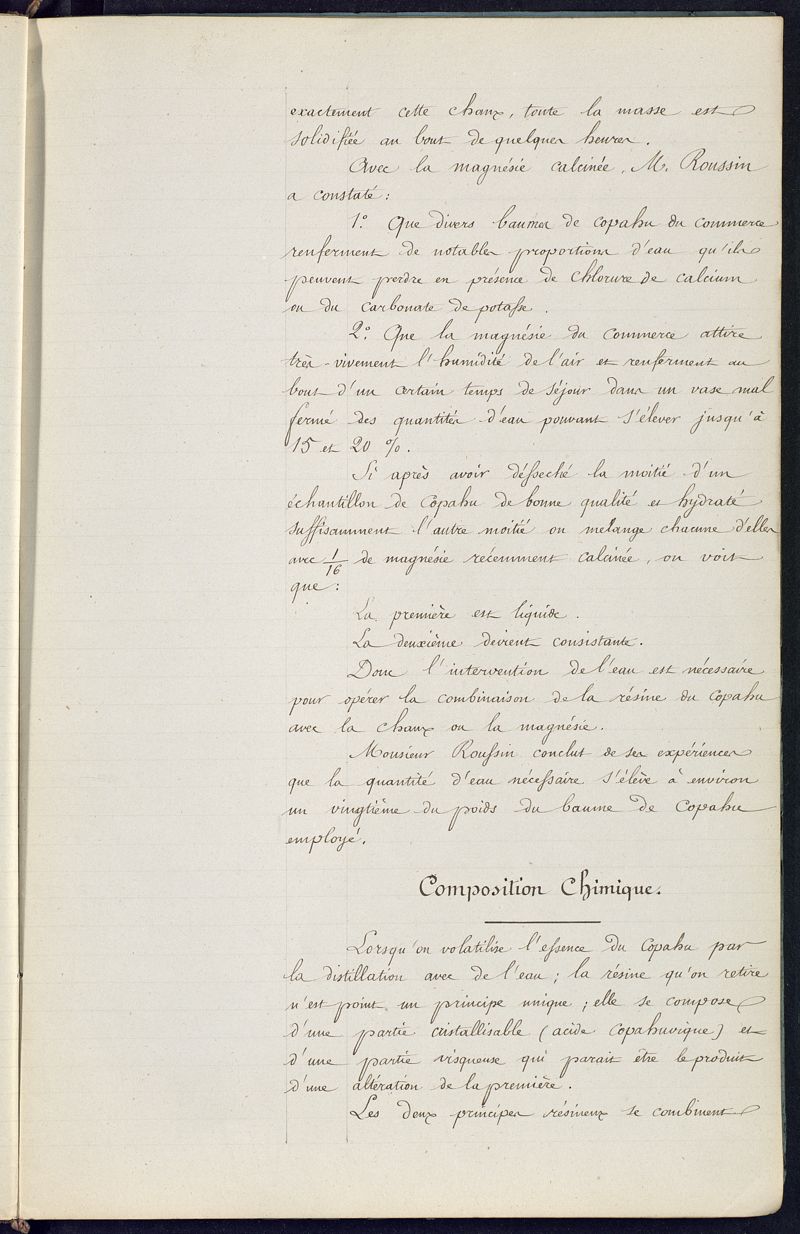 exactement cette chaux, toute la masse est
solidifiée au bout de quelques heures.
Avec la magnésie calcinée, M. Roussin
a constaté :
1.° Que divers baumes de copahu du commerce
renferment de notables proportions d'eau qu'ils
peuvent perdre en présence de chlorure de calcium
ou du carbonate de potasse.
2.° Que la magnésie du commerce attire
très-vivement l'humidité de l'air et renferment au
bout d'un certain temps de séjour dans un vase mal
fermé des quantités d'eau pouvant s'élever jusqu'à
15 et 20 %.
Si après avoir désseché la moitié d'un
échantillon de Copahu de bonne qualité et hydraté
suffisamment l'autre moitié on mélange chacune d'elles
avec 1/16 de magnésie récemment calcinée, on voit
que :
La première est liquide.
La deuxième devient consistante.
Donc l'intervention de l'eau est nécessaire
pour opérer la combinaison de la résine du Copahu
avec la chaux ou la magnésie.
Monsieur Roussin conclut de ses expériences
que la quantité d'eau nécessaire s'élève à environ
un vingtième du poids du baume de Copahu
employé.
Composition Chimique.
Lorsqu'on volatilise l'essence du Copahu par
la distillation avec de l'eau ; la résine qu'on retire
n'est point un principe unique ; elle se compose
d'une partie cristallisable (acide Copahuvique) et
d'une partie visqueuse qui parait être le produit
d'une altération de la première.
Les deux principes résineux se combinent